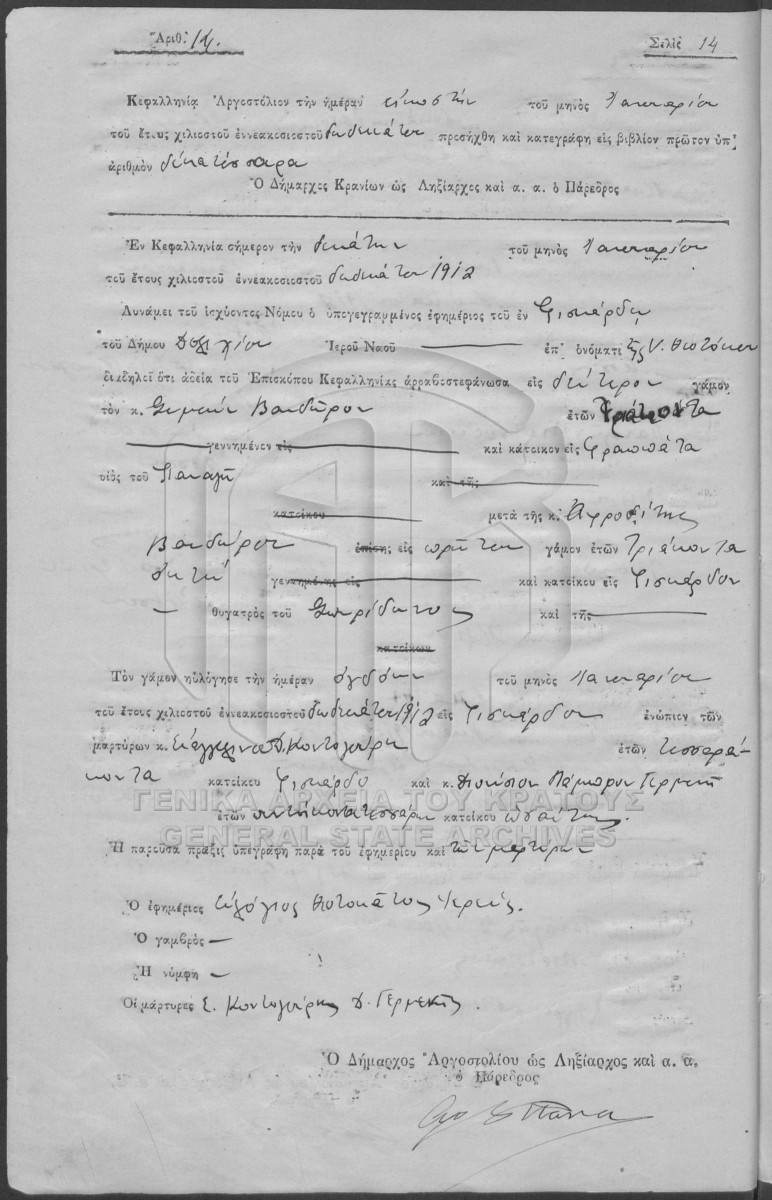 Ἀριθ. 14. Σελὶς 14
Κεφαλληνία Ἀργοστόλιον τὴν ἡμέραν εἰκοστὴν τοῦ μηνὸς Ἰανουαρίου
τοῦ ἔτους χιλιοστοῦ ἐννεακοσιοστοῦ δωδεκάτου προσήχθη καὶ κατεγράφη εἰς βιβλίον πρῶτον ὑπ'
ἀριθμὸν δεκατέσσαρα
Ὁ Δήμαρχος Κρανίων ὡς Ληξίαρχος καὶ α. α. ὁ Πάρεδρος
Ἐν Κεφαλληνίᾳ σήμερον τὴν δεκάτην τοῦ μηνὸς Ἰανουαρίου
τοῦ ἔτους χιλιοστοῦ ἐννεακοσιοστοῦ δωδεκάτου 1912
Δυνάμει τοῦ ἰσχύοντος Νόμου ὁ ὑπογεγραμμένος ἐφημέριος τοῦ ἐν Φισκάρδῳ
τοῦ Δήμου Ἱεροῦ Ναοῦ ἐπ' ὀνόματι τῆς Θεοτόκου
δικδηλοῖ ὅτι ἀδείᾳ τοῦ Ἐπισκόπου Κεφαλληνίας ἀρραβοστεφάνωσα εἰς δεύτερον γάμον
τὸν κ. Βανδῶρον ἐτῶν
γεννημένον εἰς καὶ κάτοικον εἰς
υἱὸς τοῦ Παναγῆ καὶ τῆς
κατοίκου μετὰ τῆς κ. Ἀφροδίτης
Βανδώρου ἐπίσης εἰς πρῶτον γάμον ἐτῶν τριάκοντα
ὀκτώ γεννημένης εἰς καὶ κατοίκου εἰς Φισκάρδον
θυγατρὸς τοῦ Σπυρίδωνος καὶ τῆς
κατοίκων
Τὸν γάμον ηὐλόγησε τὴν ἡμέραν ὀγδόην τοῦ μηνὸς Ἰανουαρίου
τοῦ ἔτους χιλιοστοῦ ἐννεακοσιοστοῦ δωδεκάτου 1912 εἰς Φισκάρδον ἐνώπιον τῶν
μαρτύρων κ. Εὐαγγελινοῦ Δ. Κοντογούρη ἐτῶν τεσσαρά-
κοντα κατοίκου Φισκάρδο καὶ κ. Διονύσιον
ἐτῶν κατοίκου ὡσαύτως.
Ἡ παροῦσα πρᾶξις ὑπεγράφη παρὰ τοῦ ἐφημερίου καὶ τῶν μαρτύρων
ΓΕΝΙΚΑ ΑΡΧΕΙΑ ΤΟΥ ΚΡΑΤΟΥΣ
GENERAL STATE ARCHIVES
Ὁ ἐφημέριος Εὐλόγιος Θεοτοκάτος ἱερεύς.
Ὁ γαμβρὸς —
Ἡ νύμφη —
Οἱ μάρτυρες Ε. Κοντογούρης Δ.
Ὁ Δήμαρχος Ἀργοστολίου ὡς Ληξίαρχος καὶ α. α.
ὁ Πάρεδρος